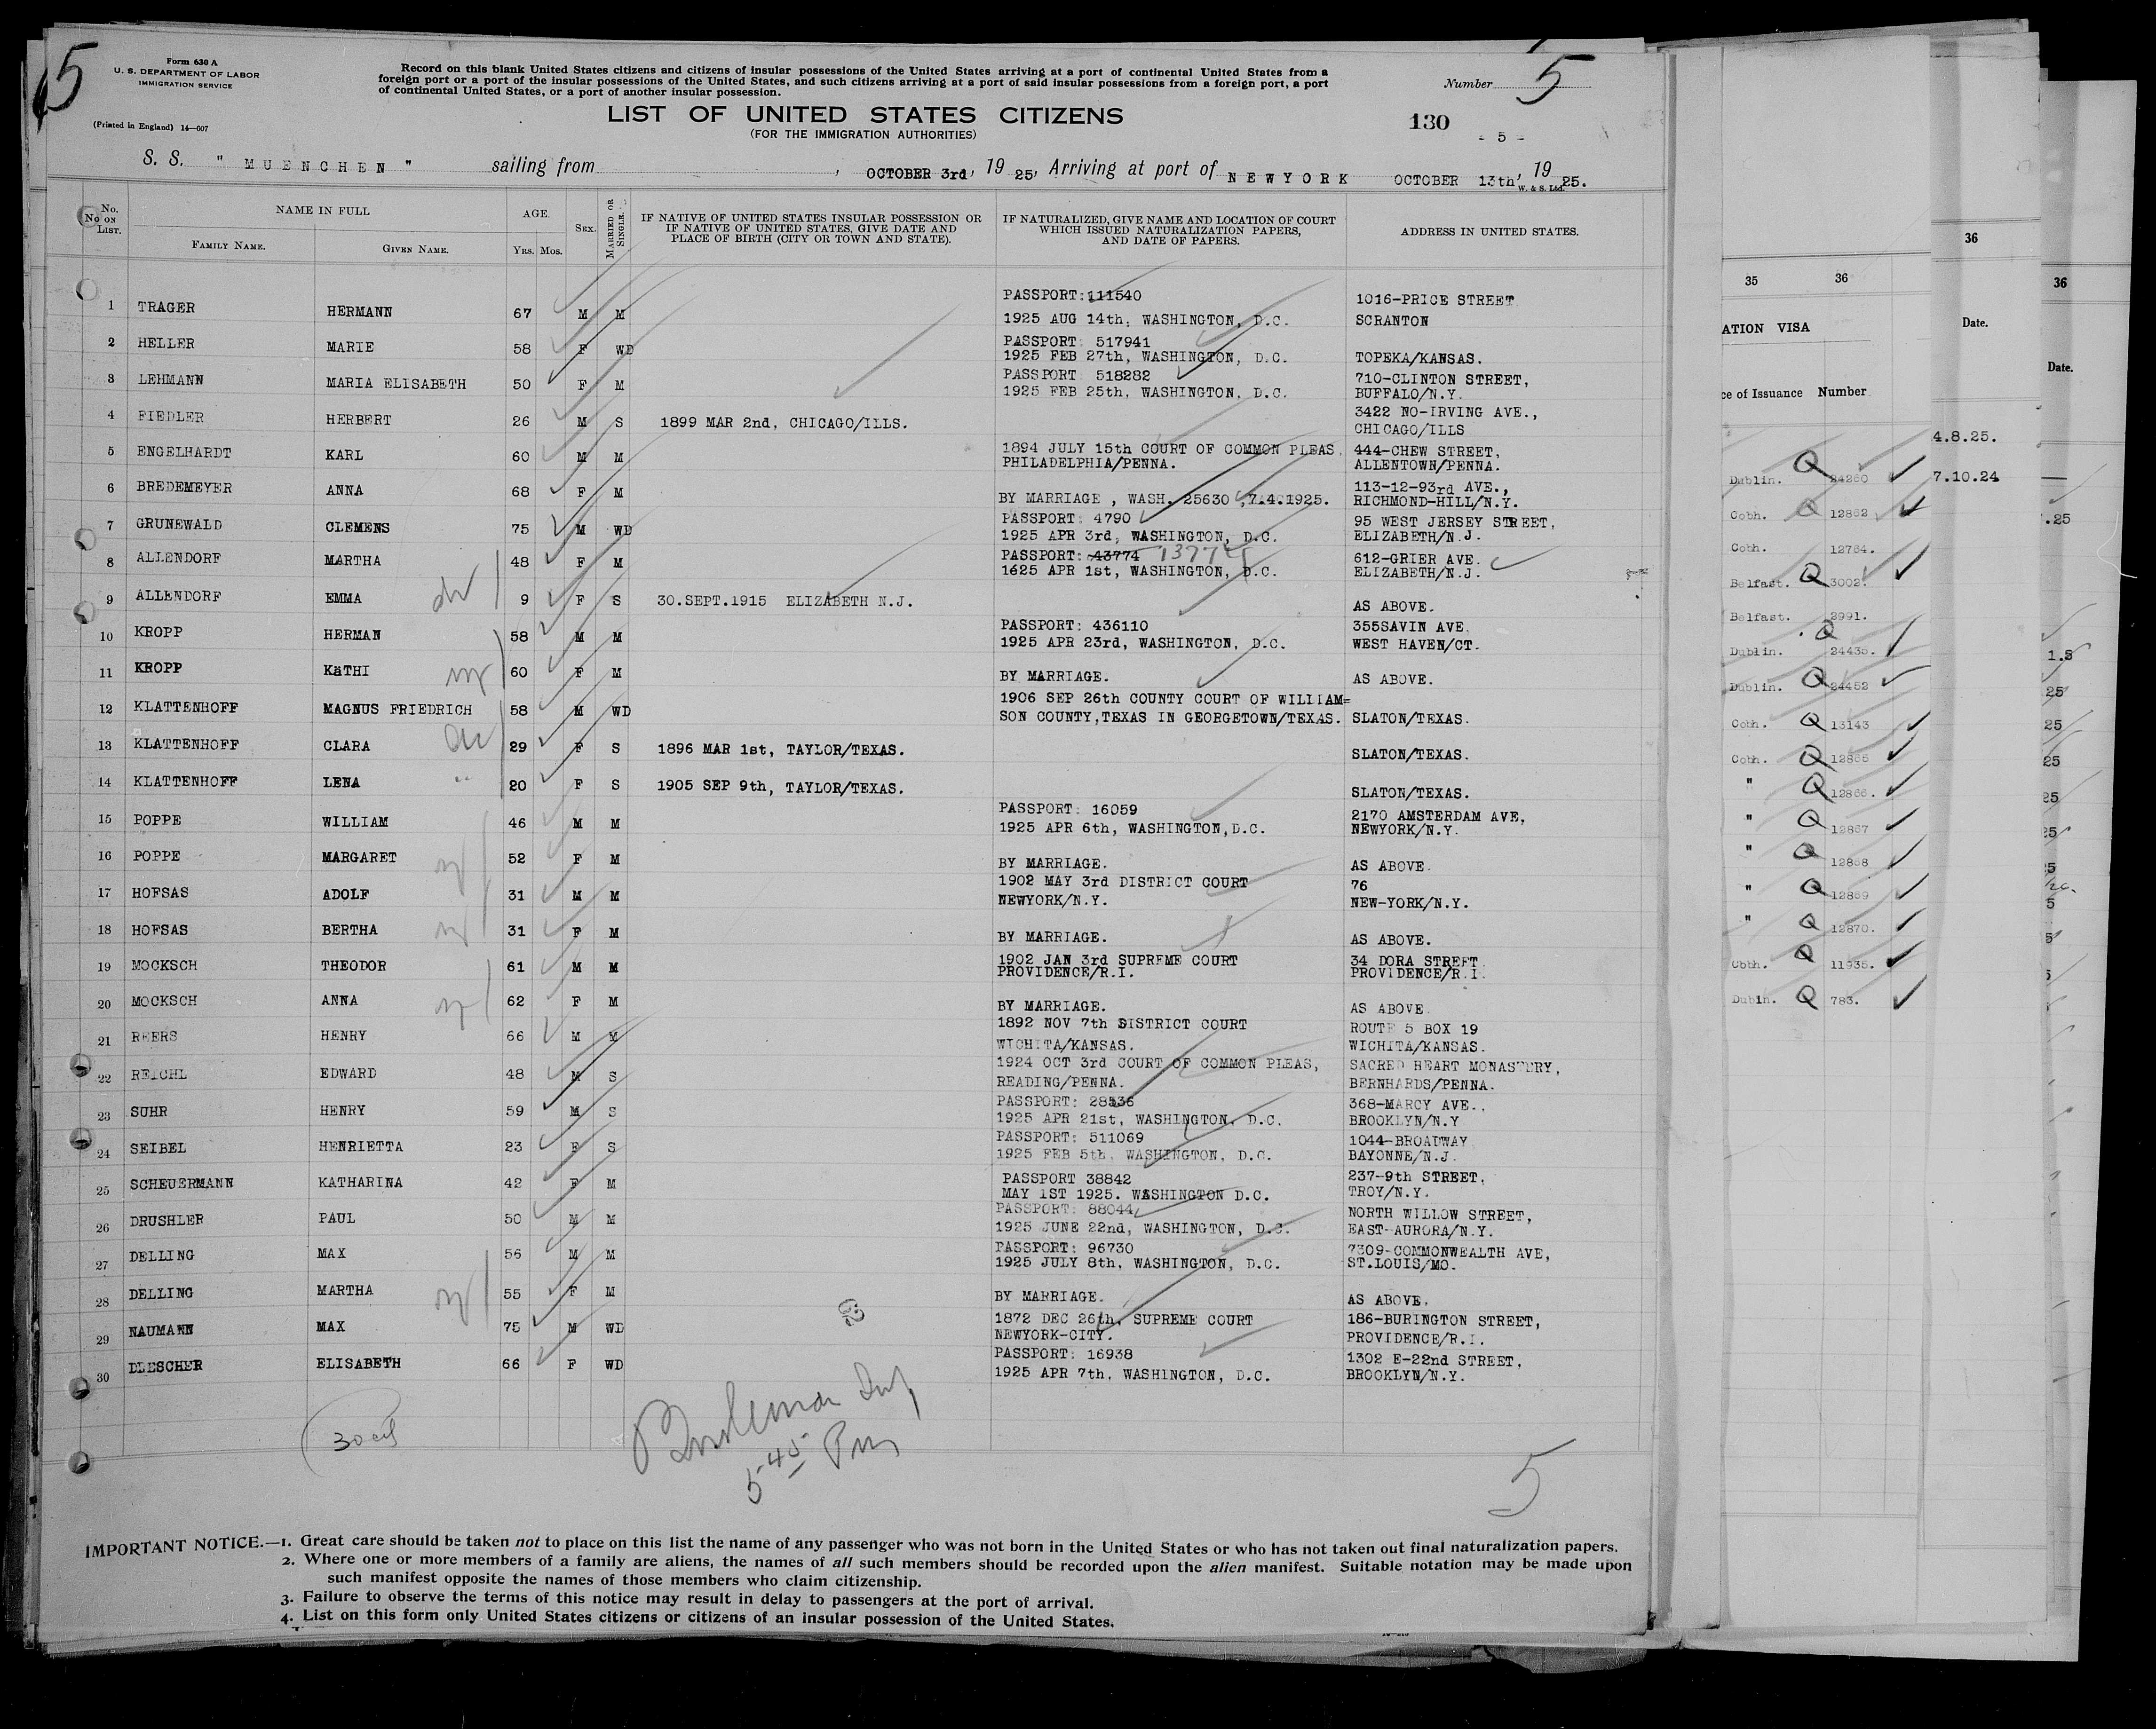 5
Form 630 A
U. S. DEPARTMENT OF LABOR
IMMIGRATION SERVICE
(Printed in England) 14—607
Record on this blank United States citizens and citizens of insular possessions of the United States arriving at a port of continental United States from a
foreign port or a port of the insular possessions of the United States, and such citizens arriving at a port of said insular possessions from a foreign port, a port
of continental United States, or a port of another insular possession.
Number 5
LIST OF UNITED STATES CITIZENS
(FOR THE IMMIGRATION AUTHORITIES)
130
- 5 -
S. S. " MUENCHEN " sailing from , OCTOBER 3rd, 19 25, Arriving at port of NEWYORK OCTOBER 13th, 19 25.
W. & S. Ltd.
No. on List.
NAME IN FULL
FAMILY NAME.
GIVEN NAME.
AGE.
Yrs. Mos.
SEX.
MARRIED OR SINGLE.
IF NATIVE OF UNITED STATES INSULAR POSSESSION OR
IF NATIVE OF UNITED STATES, GIVE DATE AND
PLACE OF BIRTH (CITY OR TOWN AND STATE).
IF NATURALIZED, GIVE NAME AND LOCATION OF COURT
WHICH ISSUED NATURALIZATION PAPERS,
AND DATE OF PAPERS.
ADDRESS IN UNITED STATES.
1 TRAGER HERMANN 67 M M PASSPORT:111540 1016-PRICE STREET
1925 AUG 14th, WASHINGTON, D.C. SCRANTON
2 HELLER MARIE 58 F WD PASSPORT: 517941
1925 FEB 27th, WASHINGTON, D.C. TOPEKA/KANSAS.
3 LEHMANN MARIA ELISABETH 50 F M PASSPORT 518282 710-CLINTON STREET,
1925 FEB 25th, WASHINGTON, D.C. BUFFALO/N.Y.
4 FIEDLER HERBERT 26 M S 1899 MAR 2nd, CHICAGO/ILLS. 3422 NO-IRVING AVE.,
CHICAGO/ILLS
5 ENGELHARDT KARL 60 M M 1894 JULY 15th COURT OF COMMON PLEAS, 444-CHEW STREET,
PHILADELPHIA/PENNA. ALLENTOWN/PENNA.
6 BREDEMEYER ANNA 68 F M 113-12-93rd AVE.,
BY MARRIAGE , WASH. 25630 ,7.4.1925. RICHMOND-HILL/N.Y.
7 GRUNEWALD CLEMENS 75 M WD PASSPORT: 4790 95 WEST JERSEY STREET,
1925 APR 3rd, WASHINGTON, D.C. ELIZABETH/N.J.
8 ALLENDORF MARTHA 48 F M PASSPORT: 43774 612-GRIER AVE.
1625 APR 1st, WASHINGTON, D.C. ELIZABETH/N.J.
9 ALLENDORF EMMA 9 F S 30.SEPT.1915 ELIZABETH N.J. AS ABOVE.
10 KROPP HERMAN 58 M M PASSPORT: 436110 355SAVIN AVE.
1925 APR 23rd, WASHINGTON, D.C. WEST HAVEN/CT.
11 KROPP KäTHI 60 F M BY MARRIAGE. AS ABOVE.
12 KLATTENHOFF MAGNUS FRIEDRICH 58 M WD 1906 SEP 26th COUNTY COURT OF WILLIAM=
SON COUNTY,TEXAS IN GEORGETOWN/TEXAS. SLATON/TEXAS.
13 KLATTENHOFF CLARA 29 F S 1896 MAR 1st, TAYLOR/TEXAS. SLATON/TEXAS.
14 KLATTENHOFF LENA 20 F S 1905 SEP 9th, TAYLOR/TEXAS. SLATON/TEXAS.
15 POPPE WILLIAM 46 M M PASSPORT: 16059 2170 AMSTERDAM AVE,
1925 APR 6th, WASHINGTON,D.C. NEWYORK/N.Y.
16 POPPE MARGARET 52 F M BY MARRIAGE. AS ABOVE.
17 HOFSAS ADOLF 31 M M 1902 MAY 3rd DISTRICT COURT 76
NEWYORK/N.Y. NEW-YORK/N.Y.
18 HOFSAS BERTHA 31 F M BY MARRIAGE. AS ABOVE.
19 MOCKSCH THEODOR 61 M M 1902 JAN 3rd SUPREME COURT 34 DORA STREET
PROVIDENCE/R.I. PROVIDENCE/R.I.
20 MOCKSCH ANNA 62 F M BY MARRIAGE. AS ABOVE.
21 REERS HENRY 66 M M 1892 NOV 7th DISTRICT COURT ROUTE 5 BOX 19
WICHITA/KANSAS. WICHITA/KANSAS.
22 REICHL EDWARD 48 M S 1924 OCT 3rd COURT OF COMMON PLEAS, SACRED HEART MONASTERY,
READING/PENNA. BERNHARDS/PENNA.
23 SUHR HENRY 59 M S PASSPORT: 28536 368-MARCY AVE.,
1925 APR 21st, WASHINGTON, D.C. BROOKLYN/N.Y
24 SEIBEL HENRIETTA 23 F S PASSPORT: 511069 1044-BROADWAY
1925 FEB 5th, WASHINGTON, D.C. BAYONNE/N.J.
25 SCHEUERMANN KATHARINA 42 F M PASSPORT 38842 237-9th STREET,
MAY 1ST 1925. WASHINGTON D.C. TROY/N.Y.
26 DRUSHLER PAUL 50 M M PASSPORT: 88044 NORTH WILLOW STREET,
1925 JUNE 22nd, WASHINGTON, D.C. EAST-AURORA/N.Y.
27 DELLING MAX 56 M M PASSPORT: 96730 7309-COMMONWEALTH AVE,
1925 JULY 8th, WASHINGTON, D.C. ST.LOUIS/MO.
28 DELLING MARTHA 55 F M BY MARRIAGE. AS ABOVE.
29 NAUMANN MAX 75 M WD 1872 DEC 26th, SUPREME COURT 186-BURINGTON STREET,
NEWYORK-CITY. PROVIDENCE/R.I.
30 DLESCHER ELISABETH 66 F WD PASSPORT: 16938 1302 E-22nd STREET,
1925 APR 7th, WASHINGTON, D.C. BROOKLYN/N.Y.
5 45 Pm
5
IMPORTANT NOTICE.—1. Great care should be taken not to place on this list the name of any passenger who was not born in the United States or who has not taken out final naturalization papers.
2. Where one or more members of a family are aliens, the names of all such members should be recorded upon the alien manifest. Suitable notation may be made upon
such manifest opposite the names of those members who claim citizenship.
3. Failure to observe the terms of this notice may result in delay to passengers at the port of arrival.
4. List on this form only United States citizens or citizens of an insular possession of the United States.
35 36
ATION VISA
ce of Issuance Number
Dublin. 24260
Cobh. 12862
Cobh. 12764.
Belfast. 3002.
Belfast. 2991.
Dublin. 24435.
Dublin. 24452
Cobh. 13143
Cobh. 12865
" 12866.
" 12867
" 12868
" 12869
" 12870.
Cobh. 11935.
Dublin. 783.
36
Date.
4.8.25.
7.10.24
36
Date.